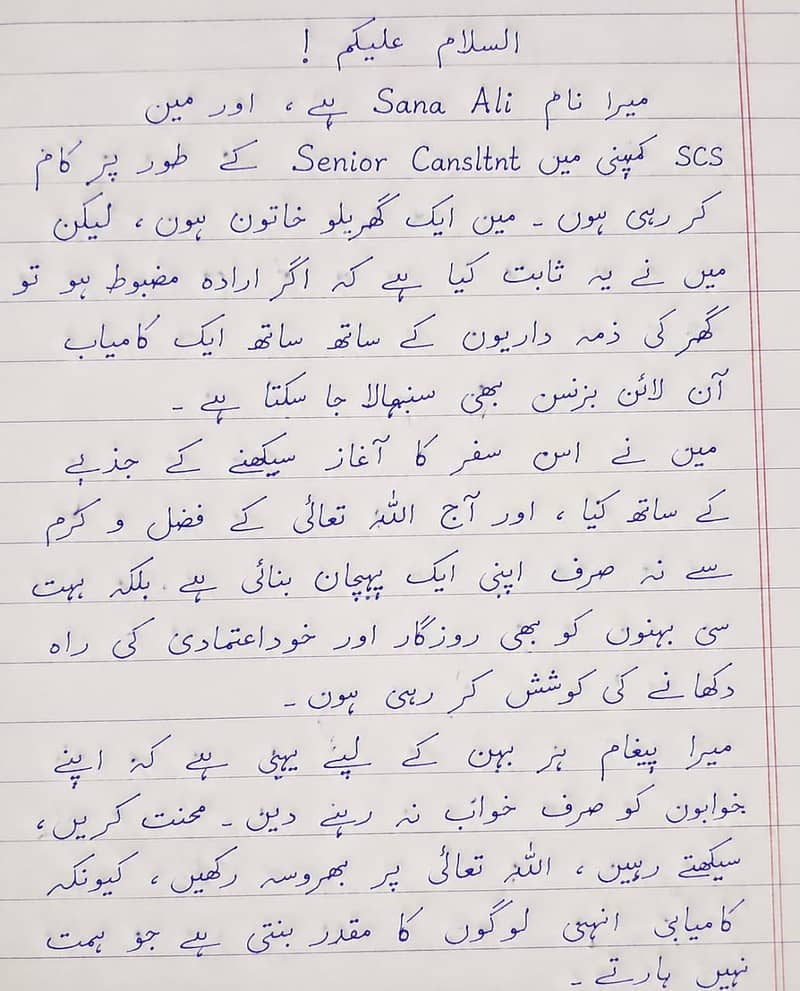 السلام علیکم !
میرا نام Sana Ali ہے ، اور مین
SCS کمپنی میں Senior Cansltnt کے طور پر کام
کر رہی ہوں ۔ مین ایک گھریلو خاتون ہون ، لیکن
میں نے یہ ثابت کیا ہے کہ اگر ارادہ مضبوط ہو تو
گھر کی ذمہ داریون کے ساتھ ساتھ ایک کامیاب
آن لائن بزنس بھی سنبھالا جا سکتا ہے ۔
مین نے اس سفر کا آغاز سیکھنے کے جذبے
کے ساتھ کیا ، اور آج اللہ تعالیٰ کے فضل و کرم
سے نہ صرف اپنی ایک پہچان بنائی ہے بلکہ بہت
سی بہنوں کو بھی روزگار اور خوداعتمادی کی راہ
دکھانے کی کوشش کر رہی ہون ۔
میرا پیغام ہر بہن کے لیے یہی ہے کہ اپنے
خوابون کو صرف خواب نہ رہنے دین ۔ محنت کریں ،
سیکھتے رہین ، اللہ تعالیٰ پر بھروسہ رکھیں ، کیونکہ
کامیابی انہی لوگوں کا مقدر بنتی ہے جو ہمت
نہیں ہارتے ۔